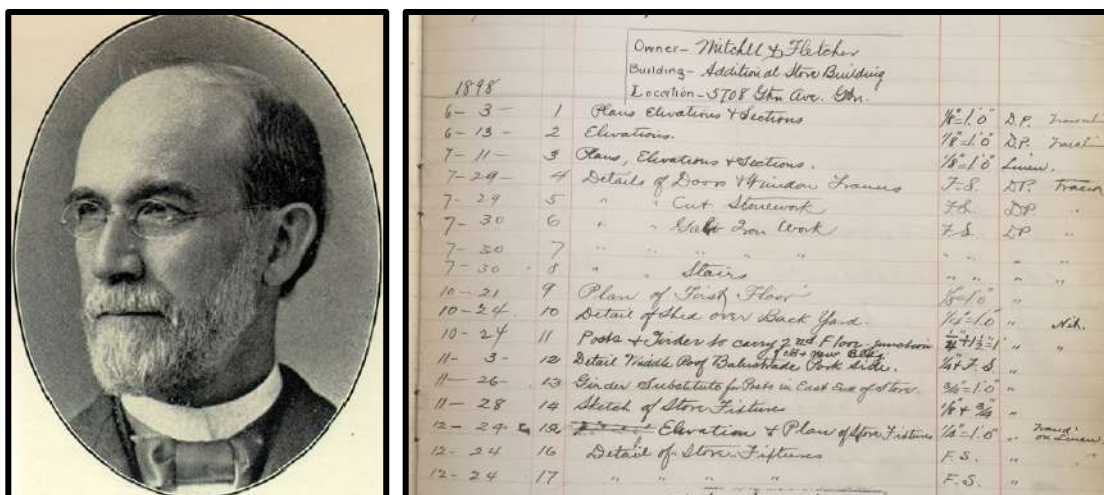 Owner- Mitchell & Fletcher
Building- Addition al Store Building
1898 Location- 5708 Gtn Ave. Gtn.
6- 3- 1 Plans Elevations & Sections 1/8"=1'.0" D.P.
6- 13- 2 Elevations. 1/8"=1'.0" D.P.
7- 11- 3 Plans, Elevations & Sections. 1/8"=1'.0" Linen.
7- 29- 4 Details of Doors & Window Frames F.S. D.P.
7- 29 5 " " Cut Stonework F.S. DP "
7- 30 6 " " Iron Work F.S. DP "
7- 30 7 " " " " " " " "
7- 30 8 " " Stairs " " " "
10- 21 9 Plan of First Floor 1/8"=1'.0" "
10- 24 10 Detail of Shed over Back Yard. 1/4"=1'.0" "
10- 24 11 Posts & Girder to carry 2nd Floor junction "
of old & new Bldg
11- 3- 12 Detail Roof Balustrade Side. F.S. "
11- 26- 13 Girder Substitute for Posts in East End of Store. 3/4"=1'.0" "
11- 28 14 Sketch of Store Fixtures 1/8 & 3/4" "
12- 15 Elevation & Plan of Store Fixtures 1/4"=1'.0" " on Linen.
12- 24 16 Detail of Store Fixtures F.S. "
12- 24 17 " " " " F.S. "